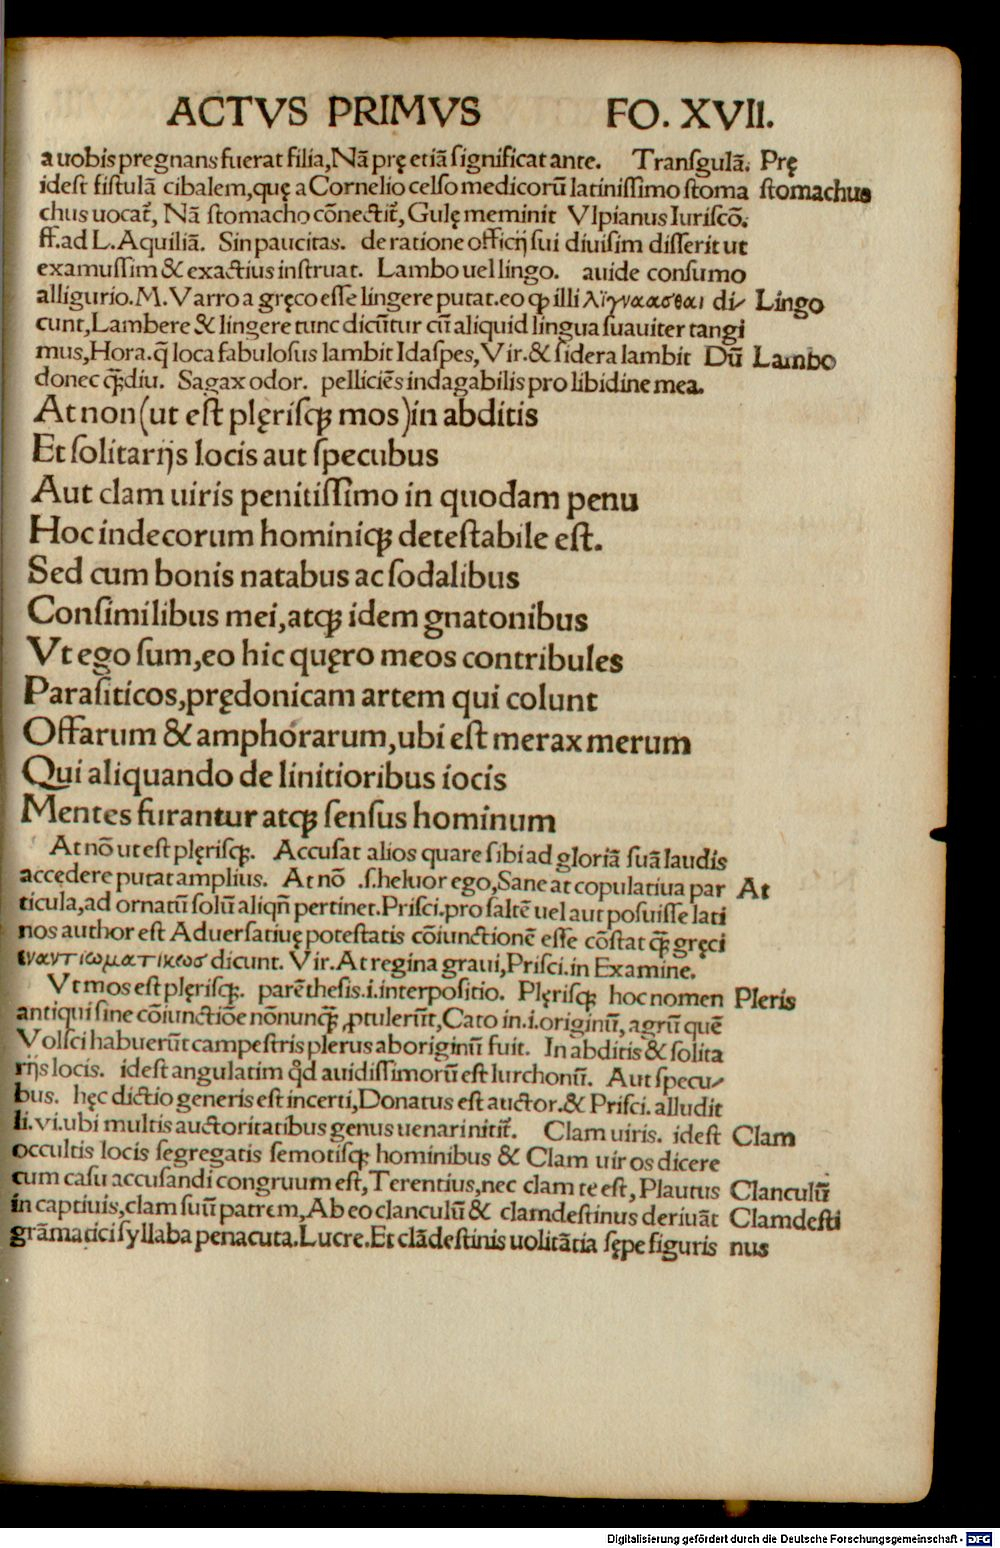 ACTVS PRIMVS FO. XVII.
a uobis pregnans fuerat filia,Nã pręetiã significat ante. Transgulã. Prę
idest fistulã cibalem,quę a Cornelio celso medicorũ latinissimo stoma stomachus
chus uocat᷑, Nã stomacho cõnectit᷑, Gulę meminit Vlpianus Iuriscõ.
ff.ad L.Aquiliã. Sin paucitas. de ratione officij sui diuisim disserit ut
examussim & exactius instruat. Lambo uel lingo. auide consumo
alligurio.M.Varro a gręco esse lingere putat.eo ꝙ illi di Lingo
cunt,Lambere & lingere tunc dicũtur cũ aliquid lingua suauiter tangi
mus,Hora.q̃ loca fabulosus lambit Idaspes,Vir.& sidera lambit Dũ Lambo
donec q̃ꝫdiu. Sagax odor. pelliciẽs indagabilis pro libidine mea.
At non(ut est plęrisqꝫ mos)in abditis
Et solitarijs locis aut specubus
Aut clam uiris penitissimo in quodam penu
Hoc indecorum hominiqꝫ detestabile est.
Sed cum bonis natabus ac sodalibus
Consimilibus mei,atqꝫ idem gnatonibus
Vt ego sum,eo hic quęro meos contribules
Parasiticos,prędonicam artem qui colunt
Offarum & amphorarum,ubi est merax merum
Qui aliquando de linitioribus iocis
Mentes furantur atqꝫ sensus hominum
At nõ ut est plęrisqꝫ. Accusat alios quare sibi ad gloriã suã laudis
accedere putat amplius. At nõ .s.heluor ego,Sane at copulatiua par At
ticula,ad ornatũ solũ aliqñ pertinet.Prisci.pro saltẽ uel aut posuisse lati
nos author est Aduersatiuę potestatis cõiunctionẽ esse cõstat q̃ꝫ gręci
εναντιωματικωσ dicunt. Vir.At regina graui,Prisci.in Examine.
Vt mos est plęrisqꝫ. parẽthesis.i.interpositio. Plęrisqꝫ hoc nomen Pleris
antiqui sine cõiunctiõe nõnunq̃ꝫ ꝓtulerũt,Cato in.i.originũ, agrũ quẽ
Volsci habuerũt campestris plerus aboriginũ fuit. In abditis & solita
rijs locis. idest angulatim qđ auidissimorũ est lurchonũ. Aut specu
bus. hęc dictio generis est incerti,Donatus est auctor.& Prisci. alludit
li.vi.ubi multis auctoritatibus genus uenari nitit᷑. Clam uiris. idest Clam
occultis locis segregatis semotisqꝫ hominibus & Clam uiros dicere
cum casu accusandi congruum est,Terentius,nec clam te est, Plautus Clanculũ
in captiuis,clam suũ patrem,Ab eo clanculũ & clamdestinus deriuãt Clamdesti
grãmatici syllaba penacuta.Lucre.Et clãdestinis uolitãtia sępe figuris nus
Digitalisierung gefördert durch die Deutsche Forschungsgemeinschaft - DFG